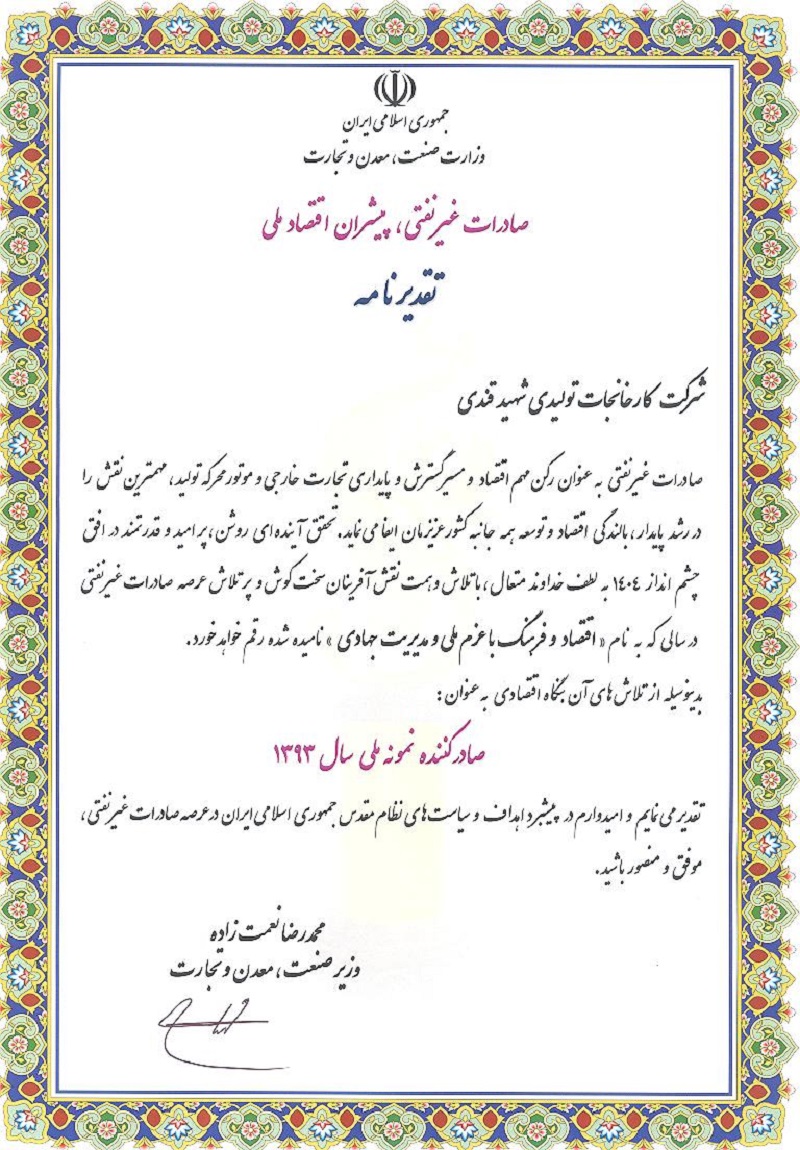 جمهوری اسلامی ایران
وزارت صنعت، معدن و تجارت
صادرات غیرنفتی، پیشران اقتصاد ملی
تقدیرنامه
شرکت کارخانجات تولیدی شهید قندی
صادرات غیرنفتی به عنوان رکن مهم اقتصاد و مسیر گسترش و پایداری تجارت خارجی و موتور محرکه تولید، مهمترین نقش را
در رشد پایدار، بالندگی اقتصاد و توسعه همه جانبه کشور عزیزمان ایفا می نماید. تحقق آینده ای روشن، پر امید و قدرتمند در افق
چشم انداز ۱۴۰۴ به لطف خداوند متعال، با تلاش و همت نقش آفرینان سخت کوش و پر تلاش عرصه صادرات غیرنفتی
در سالی که به نام « اقتصاد و فرهنگ با عزم ملی و مدیریت جهادی » نامیده شده رقم خواهد خورد.
بدینوسیله از تلاش های آن بنگاه اقتصادی به عنوان:
صادرکننده نمونه ملی سال ۱۳۹۳
تقدیر می نمایم و امیدوارم در پیشبرد اهداف و سیاست های نظام مقدس جمهوری اسلامی ایران در عرصه صادرات غیرنفتی،
موفق و منصور باشید.
محمدرضا نعمت زاده
وزیر صنعت، معدن و تجارت